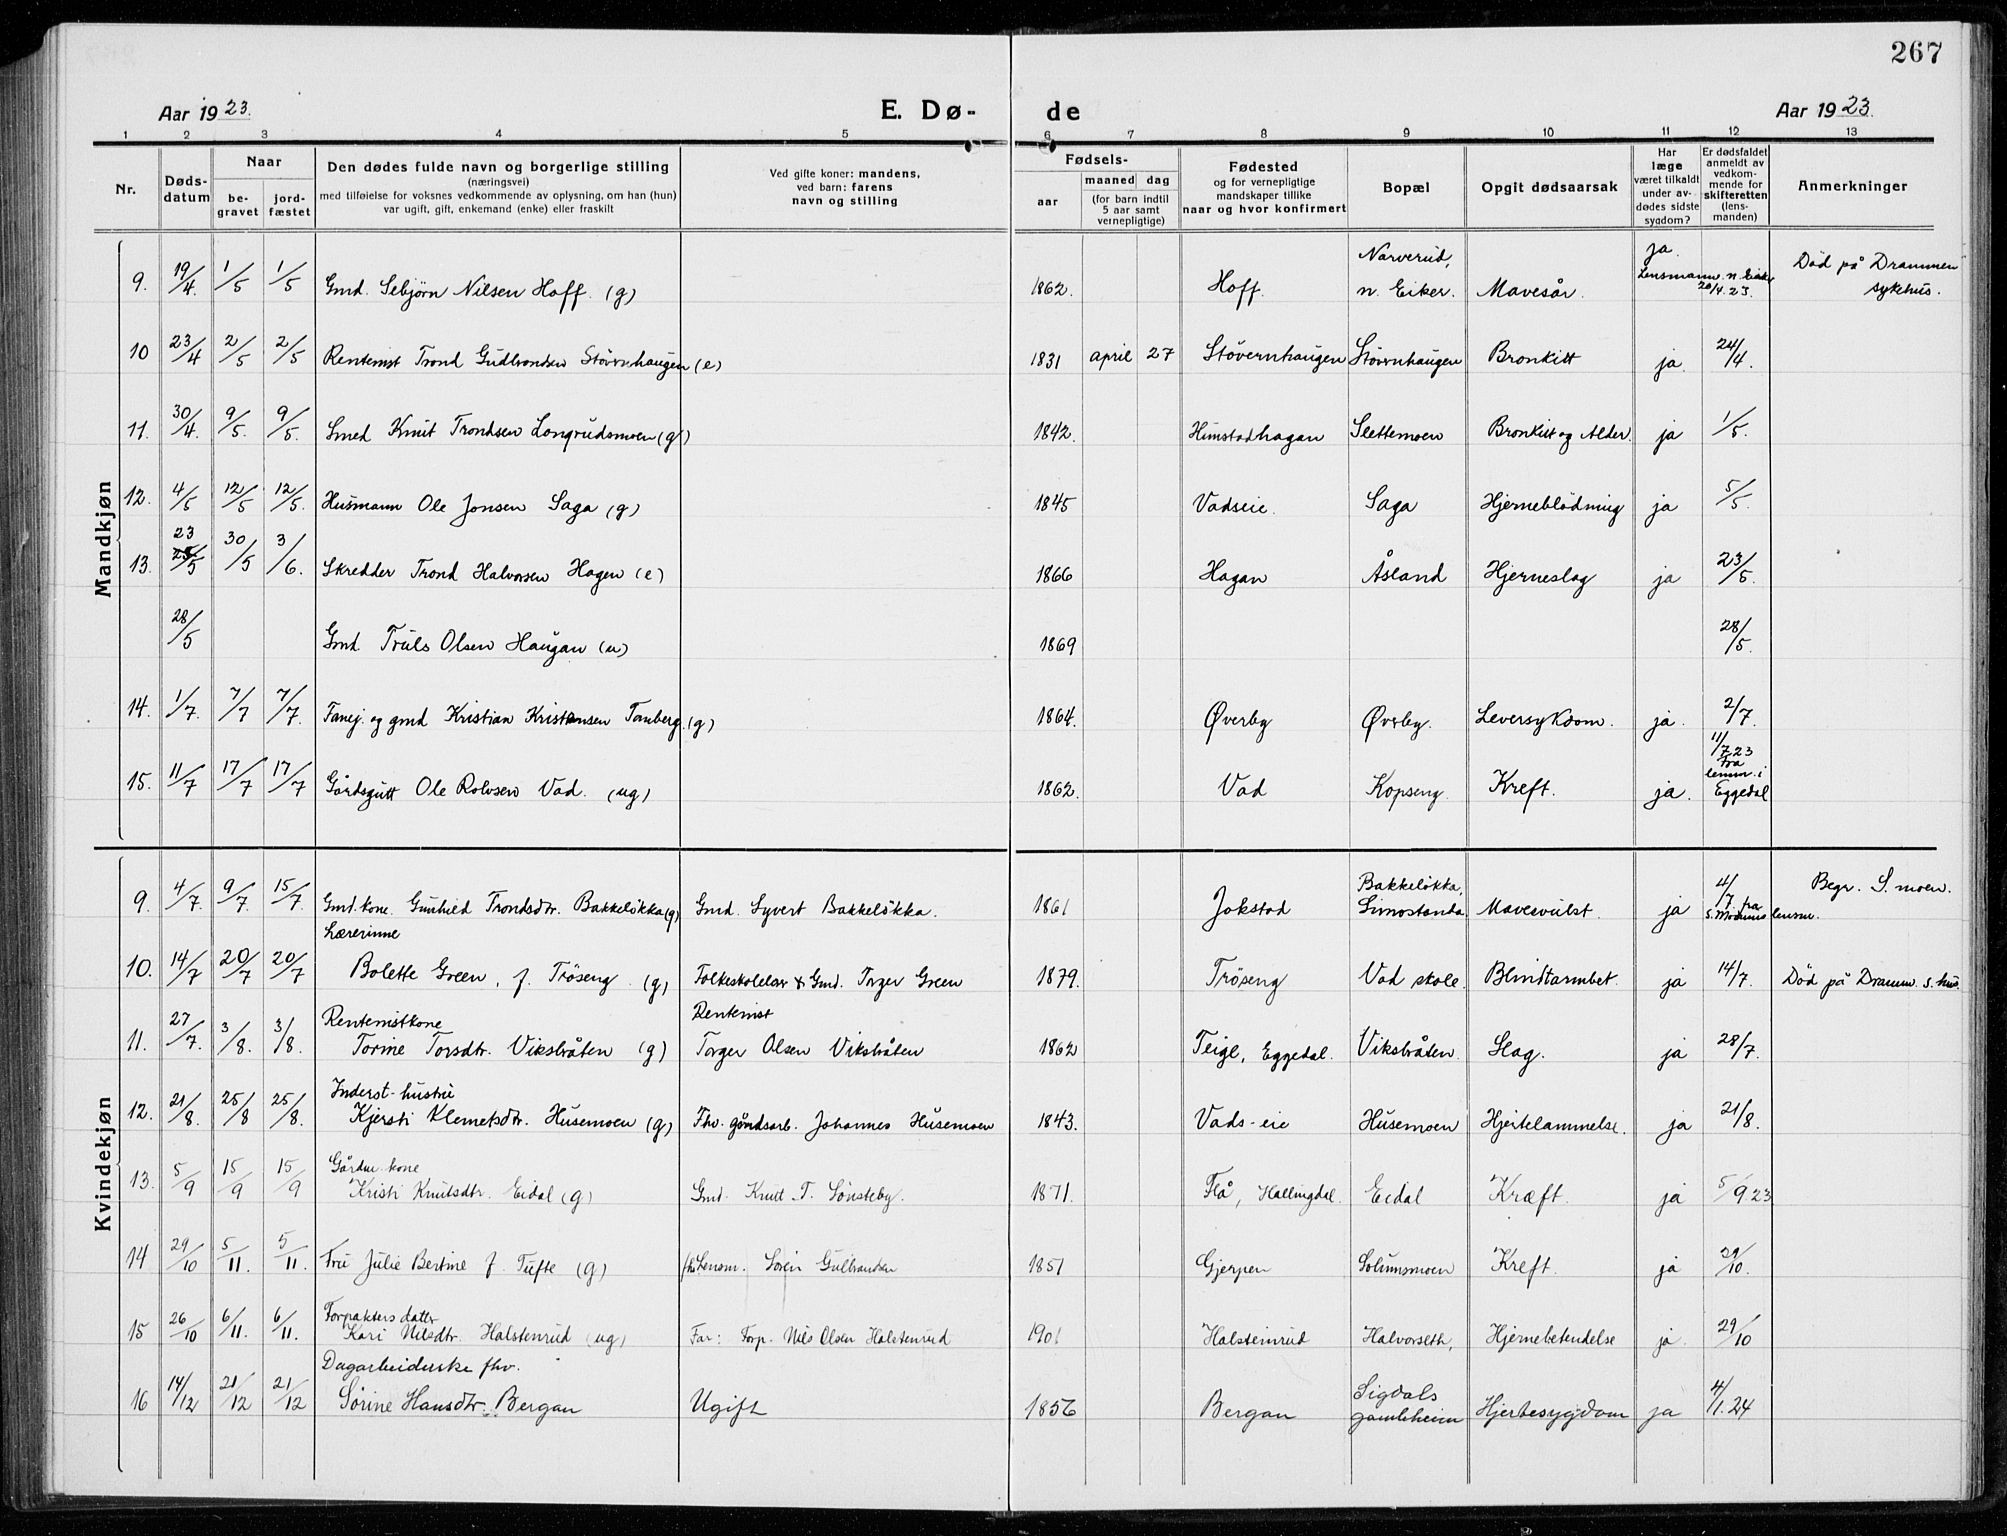 267
Aar 1923. E. Dø- de Aar 1923.
1 2 3 4 5 6 7 8 9 10 11 12 13
Nr. Døds-datum Naar be-gravet jord-fæstet Den dødes fulde navn og borgerlige stilling (næringsvei) med tilføielse for voksnes vedkommende av oplysning, om han (hun) var ugift, gift, enkemand (enke) eller fraskilt Ved gifte koner: mandens, ved barn: farens navn og stilling Fødsels- aar maaned dag (for barn indtil 5 aar samt vernepligtige) Fødested og for vernepligtige mandskaper tillike naar og hvor konfirmert Bopæl Opgit dødsaarsak Har læge været tilkaldt under av-dødes sidste sygdom? Er dødsfaldet anmeldt av vedkom-mende for skifteretten (lens-manden) Anmerkninger
Mandkjøn
9. 19/4. 1/5 1/5 Gmd. Sebjørn Nilsen Hoff. (g) 1862. Hoff. Narverud, n. Eiker. Mavesår. Ja. Lensmann. n. Eiker 20/4.23. Död på Drammen sykehus.
10 23/4 2/5 2/5 Rentenist Trond Gudbrandsen Stövernhaugen (e) 1831 april 27 Stövernhaugen Stövrnhaugen Bronkitt ja. 24/4.
11. 30/4. 9/5. 9/5. Smed Knut Trondsen Longrudsmoen (g) 1842. Himstadhagan Slettemoen Bronkitt og Alder. ja 1/5.
12. 4/5 12/5 12/5. Husmann Ole Jonsen Saga (g) 1845 Vadseie. Saga Hjerneblödning ja 5/5.
13. 23/5 30/5 3/6. Skredder Trond Halvorsen Hagen (e) 1866 Hagan Åsland Hjerneslag ja 23/5.
28/5 Gmd. Truls Olsen Haugan (u) 1869 28/5.
14. 1/7. 7/7 7/7. Fanej. og gmd Kristian Kristensen Tanberg. (g) 1864. Øverby Øvrby. Leversykdom. ja. 2/7.
15. 11/7 17/7 17/7 Gårdsgutt Ole Rolvsen Vad. (ug) 1862. Vad Kopseng. Kreft. ja. 11/7.23 Fra lensm. i Eggedal
Kvindekjøn
9. 4/7. 9/7. 15/7. Gmd. kone. Gunhild Trondsdtr. Bakkelökka (g) Gmd. Syvert Bakkelökka. 1861 Jokstad Bakkelökka, Simostranda. Mavesvulst. ja 4/7. fra S. Modums lensm. Begr. S. moen.
10. 14/7 20/7 20/7 Lærerinne Bolette Green, f. Tröseng (g) Folkeskolelærer & Gmd. Torger Green 1879. Tröseng Vad skole. Blindtarmbet. ja 14/7. Död på Dramm. s. hus.
11. 27/7. 3/8. 3/8. Rentenistkone Torine Torsdtr. Viksbråten (g) Rentenist Torger Olsen Viksbråten 1862 Teige, Eggedal. Viksbråten. Slag. ja 28/7.
12. 21/8. 25/8 25/8. Inderst-hustru Kjersti Klemetsdtr. Husemoen (g) Fhv. gårdsarb. Johannes Husemoen 1843. Vads-eie Husemoen Hjertelammelse. ja 21/8.
13. 5/9 15/9 15/9 Gårdm. kone Kristi Knutsdtr. Eidal (g) Gmd. Knut T. Sönsteby. 1871. Flå, Hallingdal. Eidal Kræft. ja 5/9 23
14 29/10 5/11. 5/11. Fru Julie Bertine f. Tufte (g) fhv. Lensm. Sören Gulbrandsen 1851 Gjerpen Solumsmoen Kreft. ja 29/10.
15 26/10 6/11. 6/11. Forpakters datter Kari Nilsdtr. Halstenrud (ug) Far: Forp. Nils Olsen Halstenrud 1901 Halsteinrud Halvorseth, Hjernebetendelse ja. 29/10
16 14/12 21/12 21/12 Dagarbeiderske fhv. Sörine Hansdtr. Bergan Ugift 1856 Bergan Sigdals gamleheim Hjertesygdom ja 4/1.24